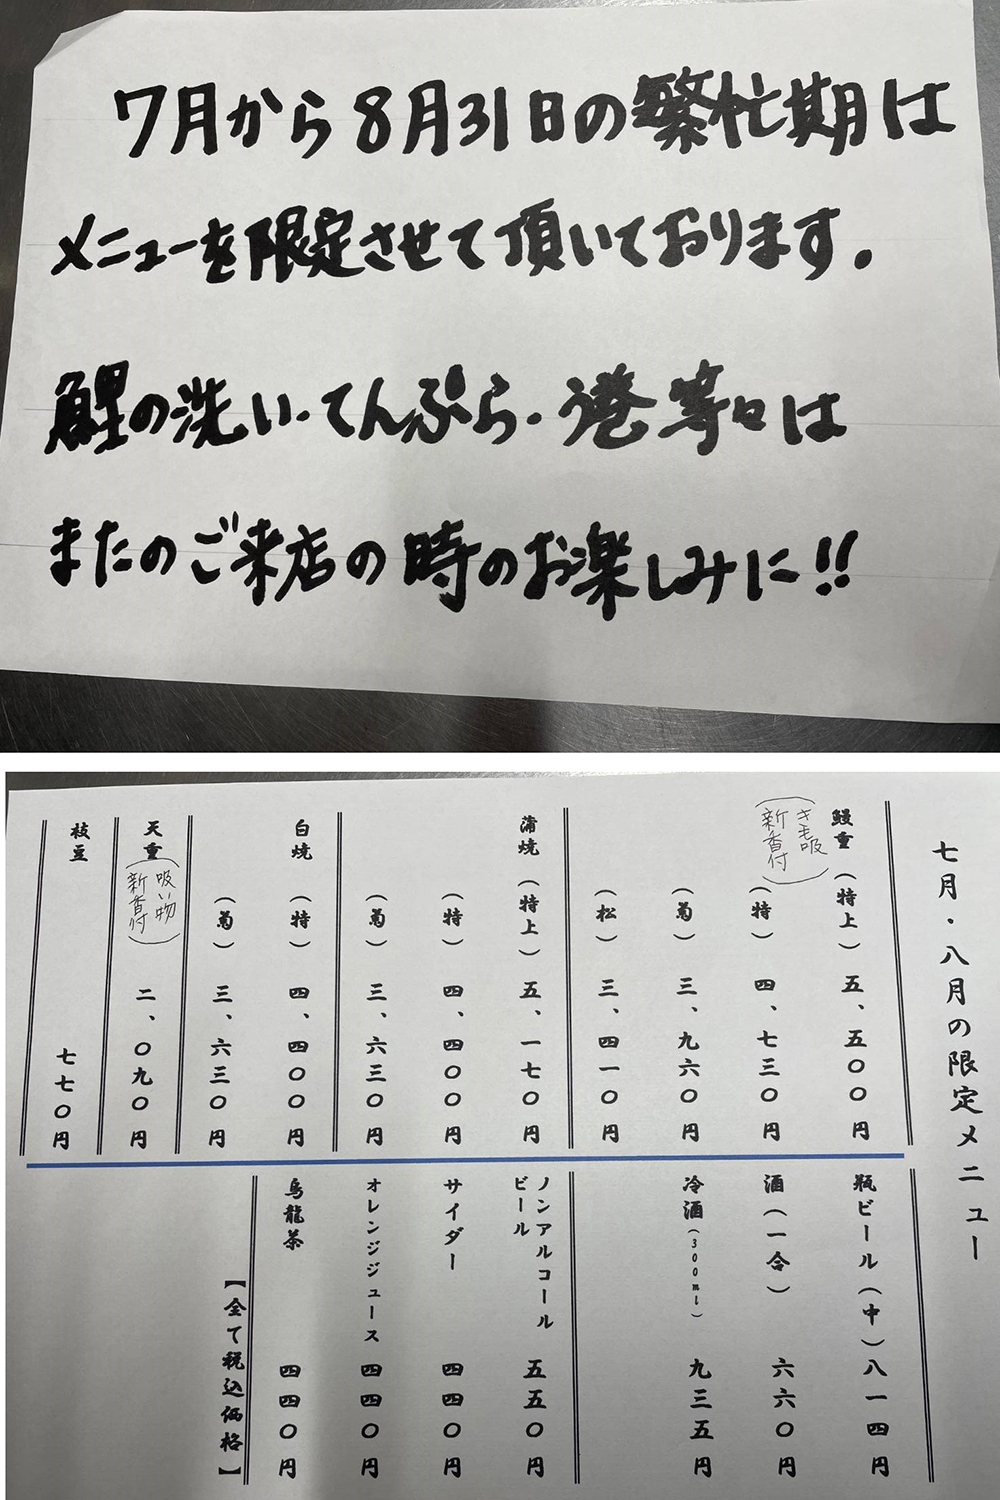 7月から8月31日の繁忙期は
メニューを限定させて頂いております。
鯉の洗い・てんぷら・う巻 等々は
またのご来店の時のお楽しみに!!
七月・八月の限定メニュー
鰻重（特上）五、五〇〇円
（キモ吸
新香付）
（特）四、七三〇円
（菊）三、九六〇円
（松）三、四一〇円
蒲焼（特上）五、一七〇円
（特）四、四〇〇円
（菊）三、六三〇円
白焼（特）四、四〇〇円
（菊）三、六三〇円
天重（吸い物
新香付）二、〇九〇円
枝豆 七七〇円
瓶ビール（中）八一四円
酒（一合）六六〇円
冷酒（300ml）九三五円
ノンアルコール
ビール 五五〇円
サイダー 四四〇円
オレンジジュース 四四〇円
烏龍茶 四四〇円
【全て税込価格】